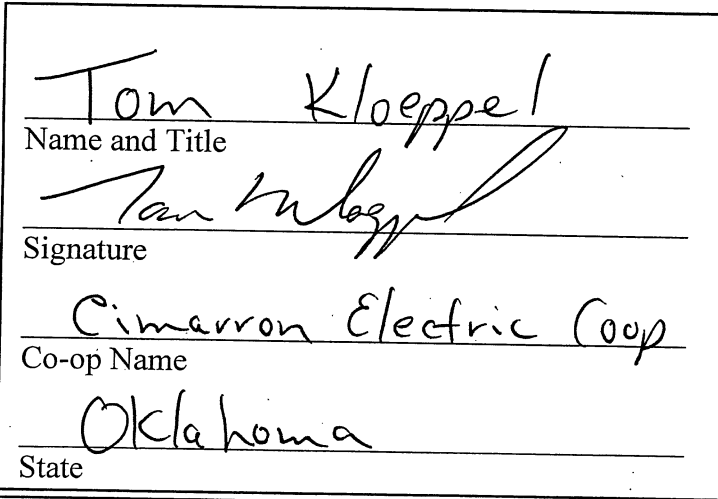 Tom Kloeppel
Name and Title
Tom Kloeppel
Signature
Cimarron Electric Coop
Co-op Name
Oklahoma
State